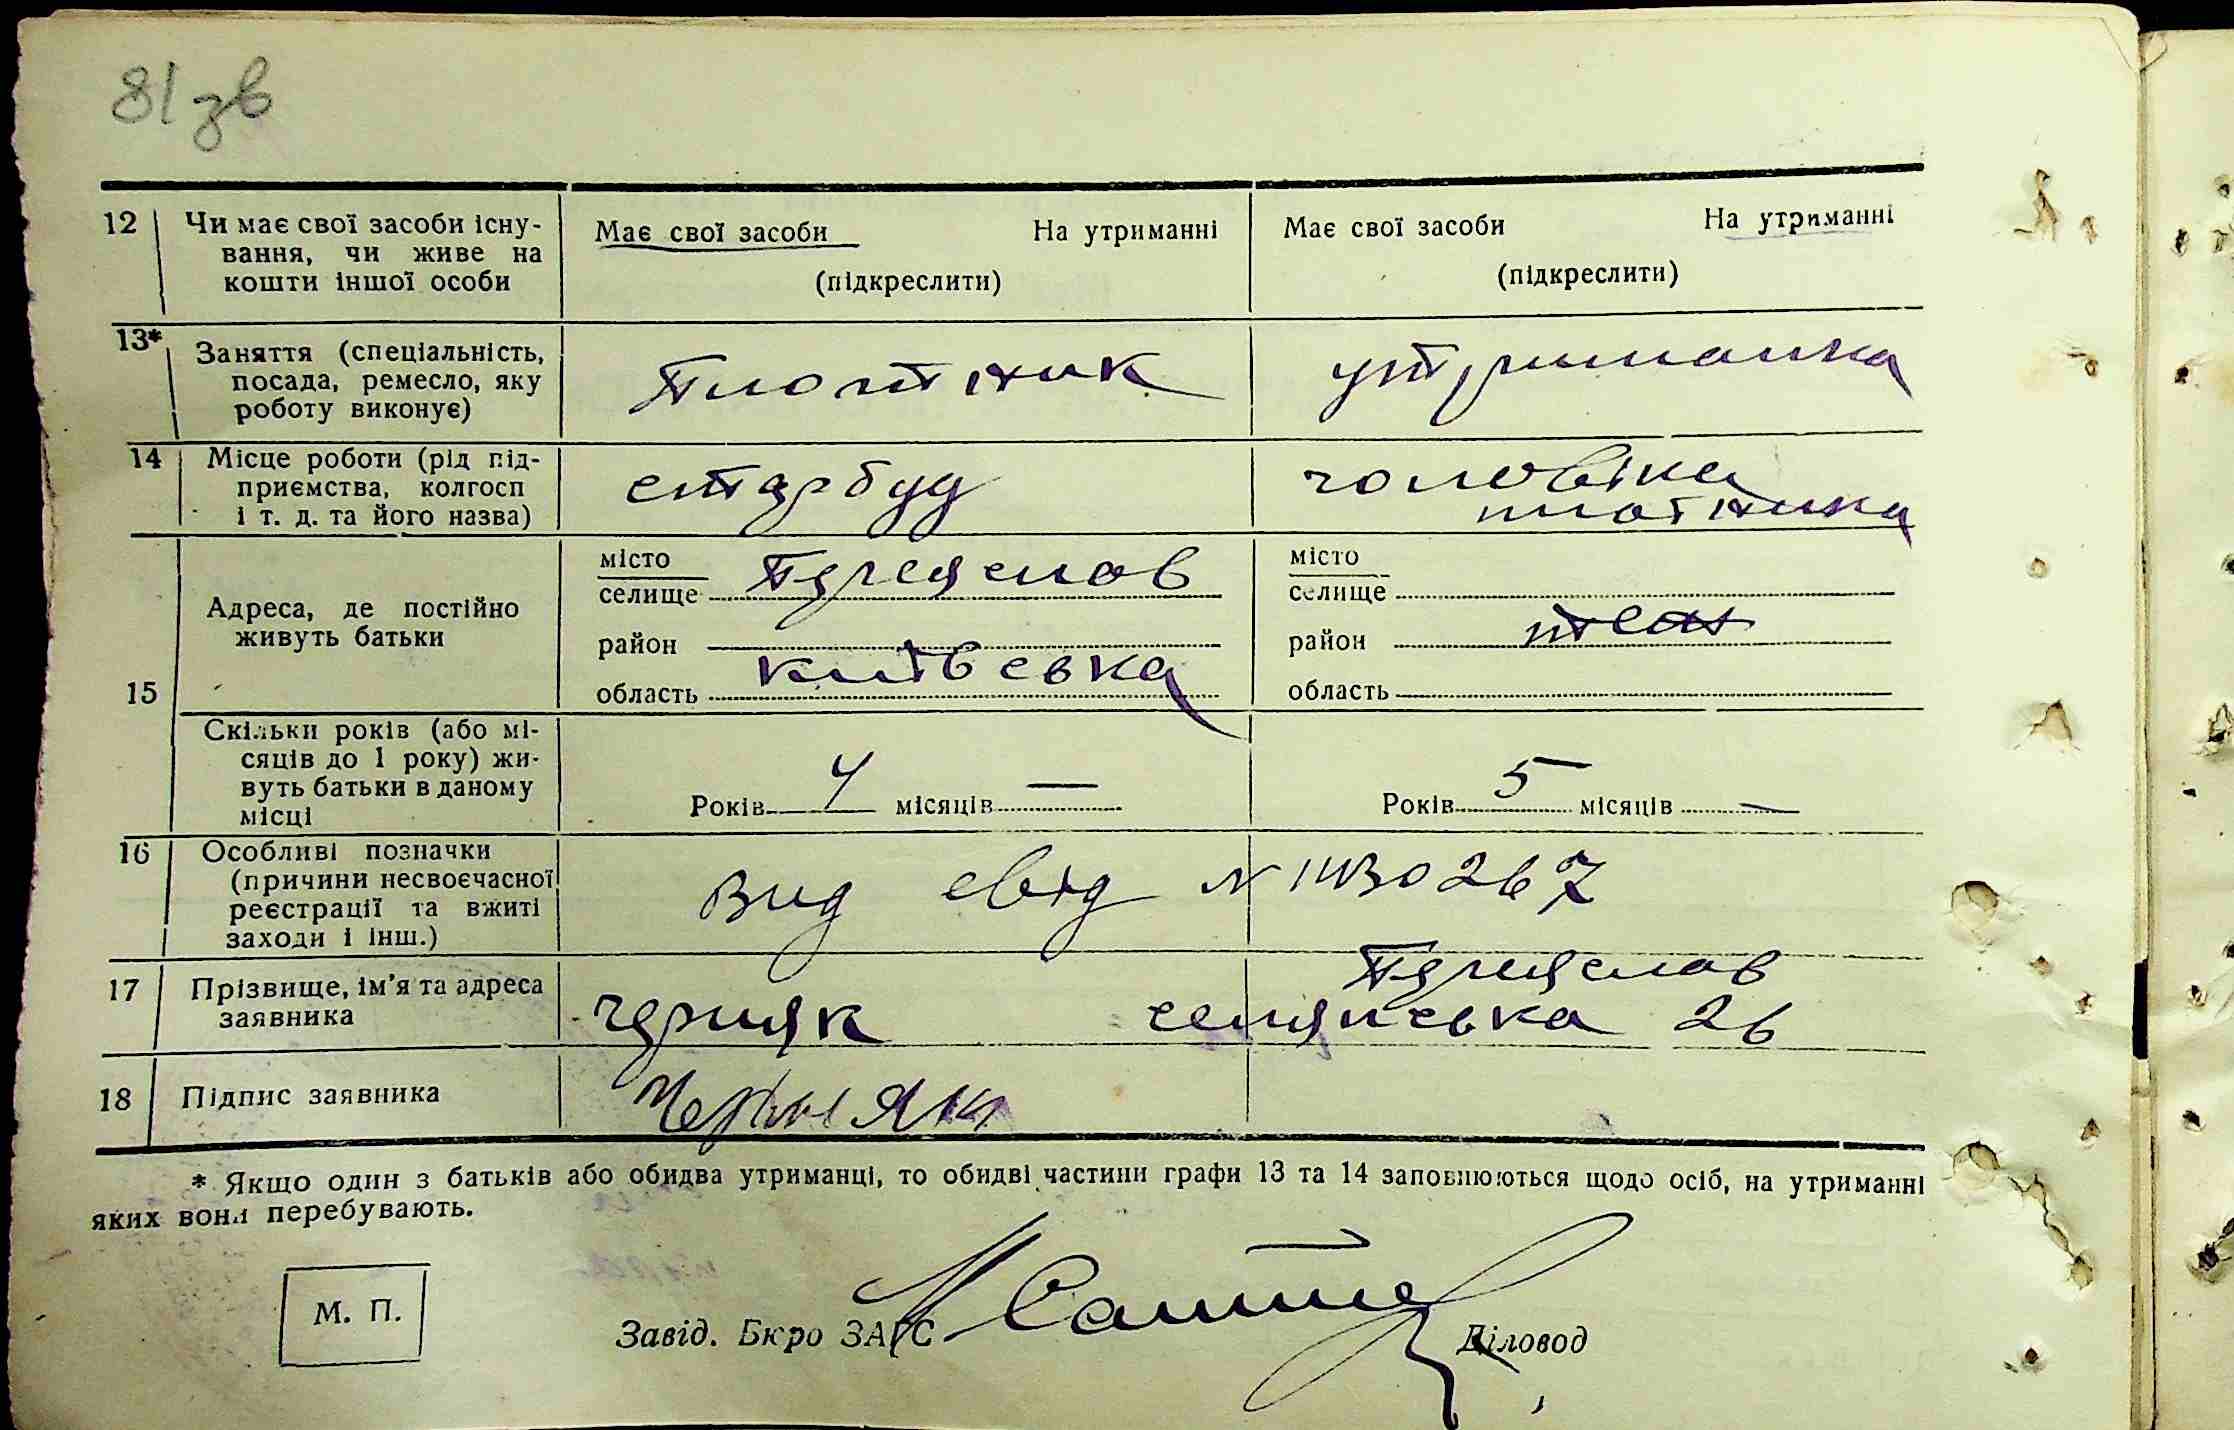 81 зв
12 Чи має свої засоби існу- Має свої засоби На утриманні Має свої засоби На утриманні
вання, чи живе на
кошти іншої особи (підкреслити) (підкреслити)
13* Заняття (спеціальність,
посада, ремесло, яку плотнік утриманка
роботу виконує)
14 Місце роботи (рід під- чоловіка
приємства, колгосп плотніка
і т. д. та його назва)
місто Переяслов місто
селище селище
Адреса, де постійно
живуть батьки район район
15 область область
Скільки років (або мі-
сяців до 1 року) жи-
вуть батьки в даному Років 4 місяців — Років 5 місяців —
місці
16 Особливі позначки
(причини несвоєчасної Вид свід N
реєстрації та вжиті
заходи і інш.)
17 Прізвище, ім'я та адреса Переяслов
заявника Черняк селянська 26
18 Підпис заявника Черняк
* Якщо один з батьків або обидва утриманці, то обидві частини графи 13 та 14 заповнюються щодо осіб, на утриманні
яких вони перебувають.
М. П.
Завід. Бюро ЗАГС Діловод